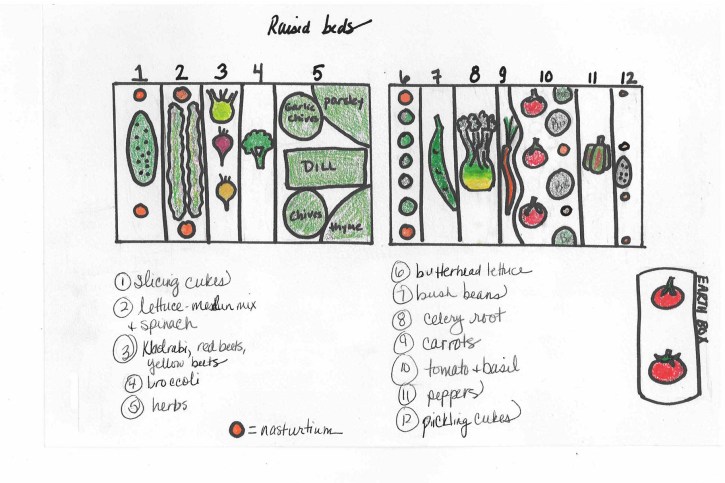 Raisid beds
1 2 3 4 5
6 7 8 9 10 11 12
Garlic
chives
parsley
DILL
Chives
thyme
① Slicing cukes
② lettuce-mesclun mix
+ spinach
③ Kholrabi, red beets,
yellow beets
④ broccoli
⑤ herbs
= nasturtium
⑥ butterhead lettuce
⑦ bush beans
⑧ celery root
⑨ carrots
⑩ tomato + basil
⑪ peppers
⑫ pickling cukes
EARTH BOX